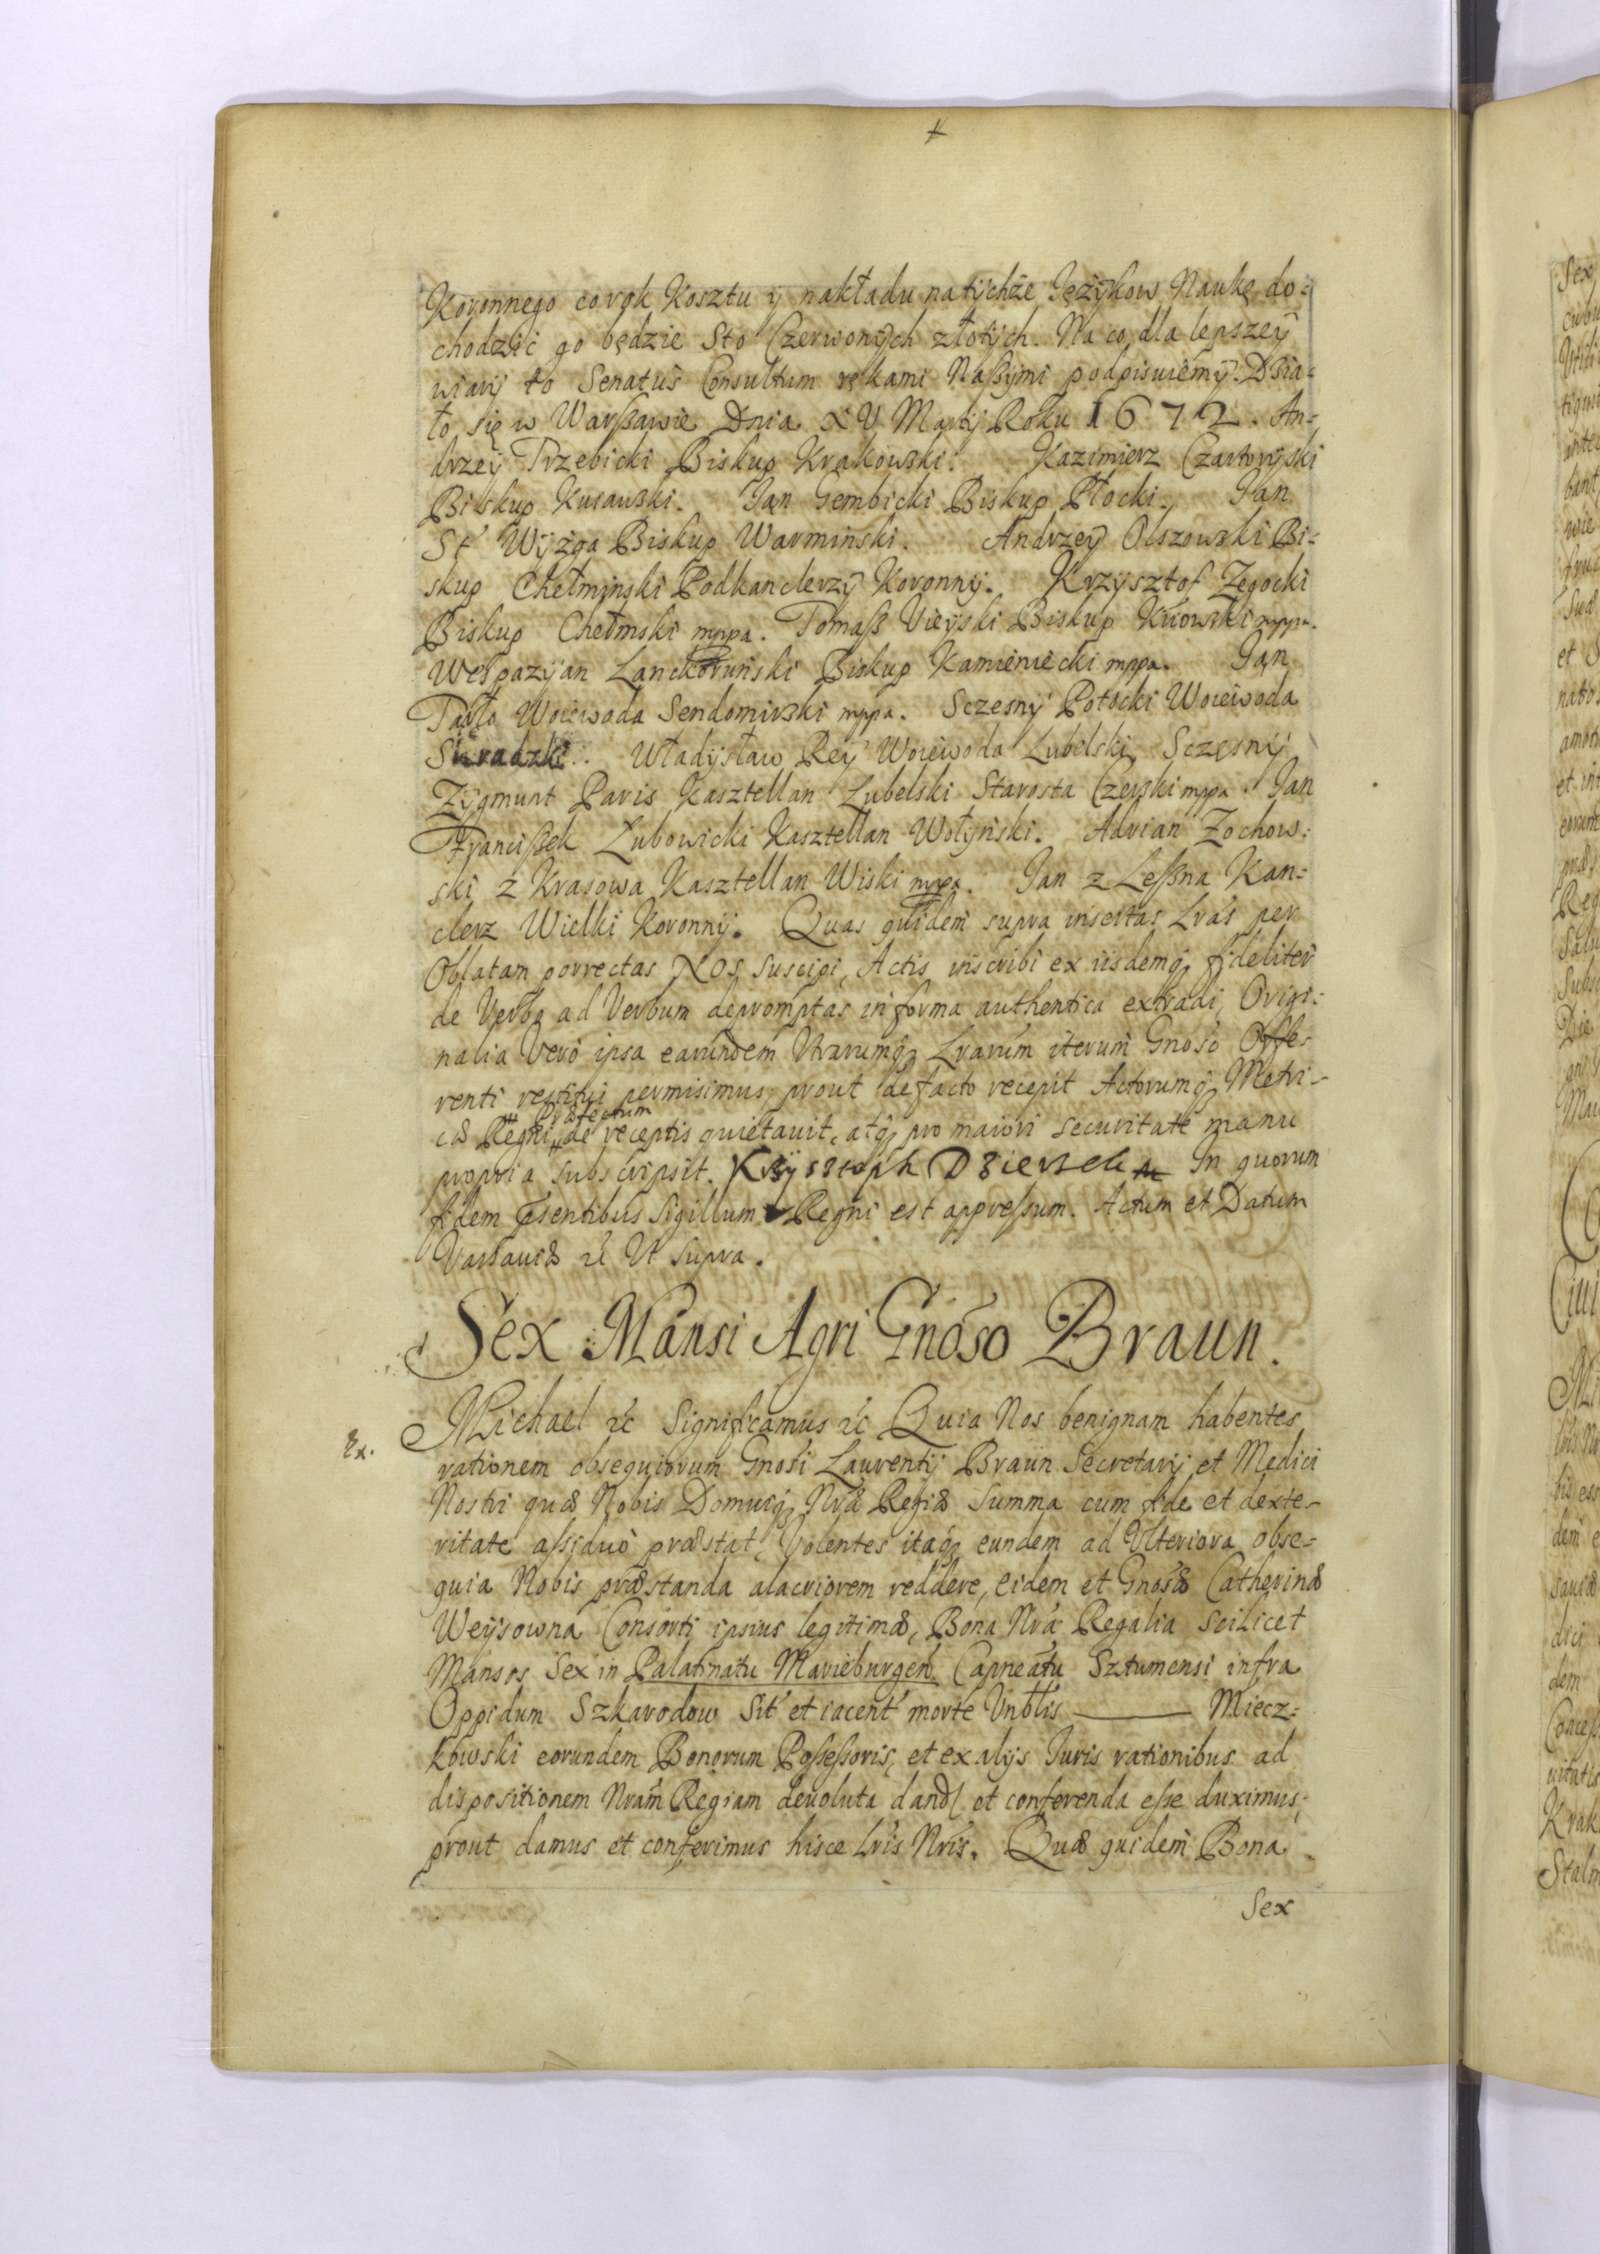 Koronnego co rok Kosztu y nakładu na tychże Ięzykow Naukę do-
chodzić go będzie Sto Czerwonych złotych. Na co dla lepszey
wiary to Senatus Consultum rękami Naßymi podpisuiemy. Dzia-
ło się w Warßawie Dnia XV Marty Roku 1672. An-
drzey Trzebicki Biskup Krakowski. Kazimierz Czartoryski
Biskup Kuiawski. Jan Gembicki Biskup Płocki. Jan
St Wyżga Biskup Warminski. Andrzey Olszowski Bi-
skup Chełminski Podkanclerzy Koronny. Krzysztof Żegocki
Biskup Chełmski mppa. Tomaß Vieyski Biskup Kiiowski mppa.
Wespazyan Lanckoruński Biskup Kamieniecki mppa. Jan
Tarło Woiewoda Sendomirski mppa. Sczesny Potocki Woiewoda
Siradzki. Władysław Rey Woiewoda Lubelski Sczęsny
Zygmunt Paris Kasztellan Lubelski Starosta Czerski mppa. Jan
Francißek Lubowicki Kasztellan Wołyński. Adrian Zochow-
ski z Krasowa Kasztellan Wiski mppa. Jan z Leßna Kan-
clerz Wielki Koronny. Quas quidem supra insertas Lras per
Oblatam porrectas Nos suscipi, Actis inscribi ex iisdemq fideliter
de Verbo ad Verbum depromptas in forma authentica extradi, Origi-
nalia Vero ipsa earundem Nrarumq Lrarum iterum Gnoso Offe-
renti restitui permisimus, prout de facto recepit Actorumq Metri-
Præfectum
cæ Regni de receptis quietavit, atq pro maiori securitate manu
propria subscripsit. Krzysztoph Dzierzek In quorum
fidem præsentibus Sigillum Regni est appressum. Actum et Datum
Varsaviæ etc Ut supra.
Sex Mansi Agri Gnoso Braun.
Ex.
Michael etc Significamus etc Quia Nos benignam habentes
rationem obsequiorum Gnosi Laurentij Braun Secretarij et Medici
Nostri quæ Nobis Domuiq Nræ Regiæ summa cum fide et dexte-
ritate assiduò præstat, Volentes itaq eundem ad Ulteriora obse-
quia Nobis præstanda alacriorem reddere, eidem et Gnosæ Catherinæ
Weysowna Consorti ipsius legitimæ, Bona Nra Regalia scilicet
Mansos Sex in Palatinatu Marieburgen Capneatu Sztumensi infra
Oppidum Szkarodow Sit et iacent morte Unblis ——— Miecz-
kowski eorundem Bonorum Possessoris, et ex alijs Juris rationibus ad
dispositionem Nram Regiam devoluta dand et conferenda esse duximus,
prout damus et conferimus hisce Lris Nris. Quæ quidem Bona
Sex